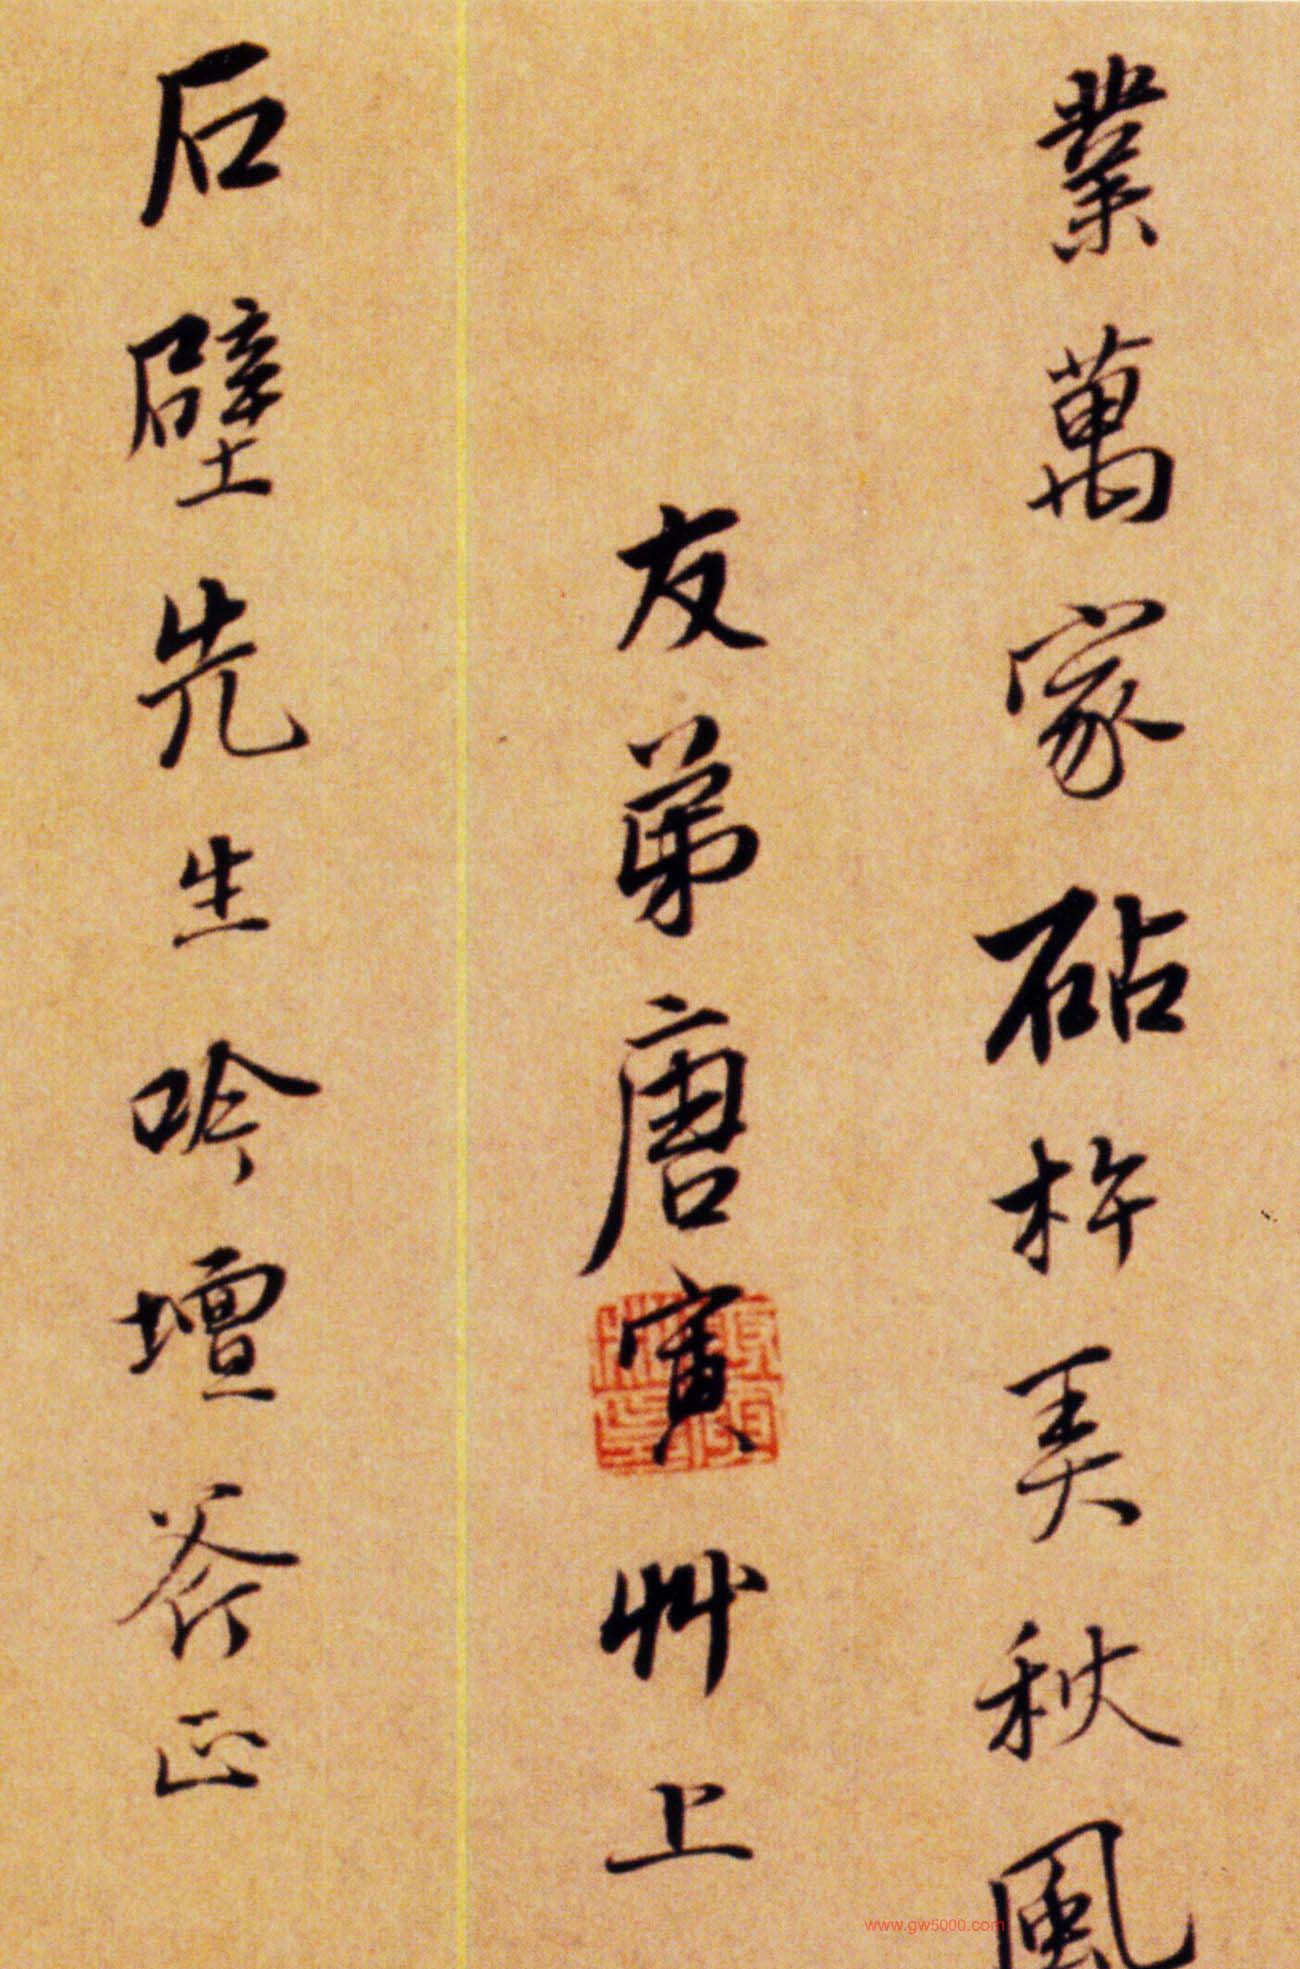 業萬家砧杵美秋風
友弟唐寅艸上
石壁先生吟壇斧正
www.gw5000.com